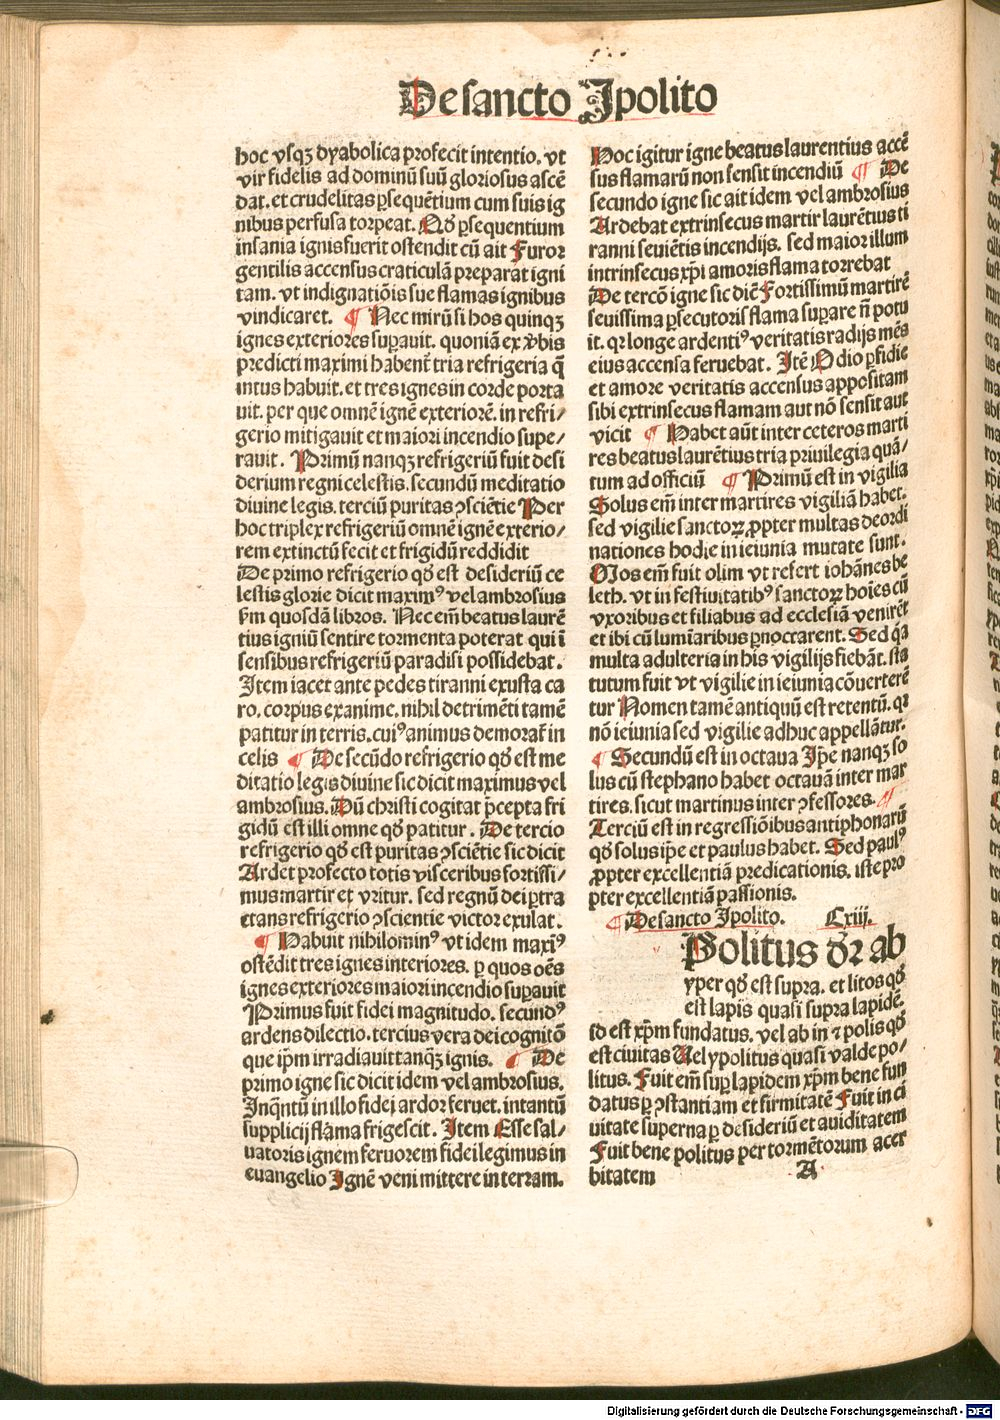 De sancto Ipolito
hoc vsqꝫ dyabolica profecit intentio. vt
vir fidelis ad dominū suū gloriosus ascē
dat. et crudelitas ꝑsequētium cum suis ig
nibus perfusa torpeat. Qđ ꝑsequentium
insania ignis fuerit ostendit cū ait Furor
gentilis accensus craticulā preparat igni
tam. vt indignatiōis sue flamas ignibus
vindicaret. ¶ Nec mirū si hos quinqꝫ
ignes exteriores suꝑauit. quoniā ex v̾bis
predicti maximi habent̄ tria refrigeria q̄
intus habuit. et tres ignes in corde porta
uit. per que omnē ignē exteriorē. in refri/
gerio mitigauit et maiori incendio supe/
rauit. Primū nanqꝫ refrigeriū fuit desi
derium regni celestis. secundū meditatio
diuine legis. terciū puritas ꝯsciētie Per
hoc triplex refrigeriū omnē ignē exterio/
rem extinctū fecit et frigidū reddidit
De primo refrigerio qđ est desideriū ce
lestis glorie dicit maximꝰ vel ambrosius
ẜm quosdā libros. Nec em̄ beatus laurē
tius igniū sentire tormenta poterat qui ī
sensibus refrigeriū paradisi possidebat.
Item iacet ante pedes tiranni exusta ca
ro. corpus exanime. nihil detrimēti tamē
patitur in terris. cuiꝰ animus demorat̄ in
celis ¶ De secūdo refrigerio qđ est me
ditatio legis diuine sic dicit maximus vel
ambrosius. Dū christi cogitat p̄cepta fri
gidū est illi omne qđ patitur. De tercio
refrigerio qđ est puritas ꝯsciētie sic dicit
Ardet profecto totis visceribus fortissi/
mus martir et vritur. sed regnū dei ꝑtra
ctans refrigerio ꝯscientie victor exulat.
¶ Habuit nihilominꝰ vt idem maxīꝰ
ostēdit tres ignes interiores. ꝑ quos oēs
ignes exteriores maiori incendio suꝑauit
Primus fuit fidei magnitudo. secundꝰ
ardens dilectio. tercius vera dei cognitō
que ip̄m irradiauit tanqꝫ ignis. ¶ De
primo igne sic dicit idem vel ambrosius.
Inq̄ntū in illo fidei ardor feruet. intantū
supplicij flāma frigescit. Item Esse sal/
uatoris ignem feruorem fidei legimus in
euangelio Ignē veni mittere in terram.
Hoc igitur igne beatus laurentius accē
sus flamarū non sensit incendiū ¶ De
secundo igne sic ait idem vel ambrosius
Ardebat extrinsecus martir laurētius ti
ranni seuiētis incendijs. sed maior illum
intrinsecus xp̄i amoris flama torrebat
De tercō igne sic diē Fortissimū martirē
seuissima ꝑsecutoris flama suꝑare n̄ potu
it. qr longe ardentiꝰ veritatis radijs mēs
eius accensa feruebat. Itē Odio ꝑfidie
et amore veritatis accensus appositam
sibi extrinsecus flamam aut nō sensit aut
vicit ¶ Habet aūt inter ceteros marti
res beatus laurētius tria priuilegia quā/
tum ad officiū ¶ Primū est in vigilia
Solus em̄ inter martires vigiliā habet.
sed vigilie sanctoꝝ ꝓpter multas deordi
nationes hodie in ieiunia mutate sunt.
Mos em̄ fuit olim vt refert iohānes be
leth. vt in festiuitatibꝰ sanctoꝝ hoīes cū
vxoribus et filiabus ad ecclesiā venirēt
et ibi cū lumīaribus ꝑnoctarent. Sed q̄a
multa adulteria in his vigilijs fiebāt. sta
tutum fuit vt vigilie in ieiunia cōuerterē
tur Nomen tamē antiquū est retentū. qr
nō ieiunia sed vigilie adhuc appellātur.
¶ Secundū est in octaua Ip̄e nanqꝫ so
lus cū stephano habet octauā inter mar
tires. sicut martinus inter ꝯfessores. ¶
Terciū est in regressiōibus antiphonarū
qđ solus ip̄e et paulus habet. Sed paulꝰ
ꝓpter excellentiā predicationis. iste pro
pter excellentiā passionis.
¶ De sancto Ipolito. Cxiii.
Politus dr̄ ab
yper qđ est supra. et litos qđ
est lapis quasi supra lapidē.
id est xp̄m fundatus. vel ab in ⁊ polis qđ
est ciuitas Uel ypolitus quasi valde po/
litus. Fuit em̄ suꝑ lapidem xp̄m bene fun
datus ꝑ ꝯstantiam et firmitatē Fuit in ci
uitate superna ꝑ desideriū et auiditatem
Fuit bene politus per tormētorum acer
bitatem A
Digitalisierung gefördert durch die Deutsche Forschungsgemeinschaft - DFG